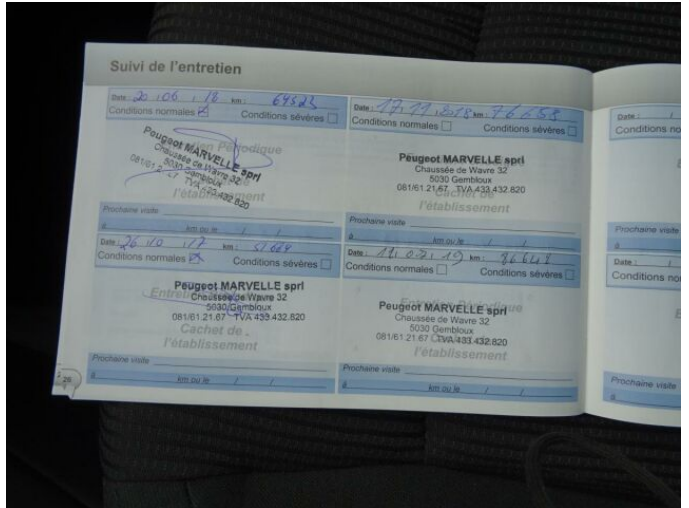 Suivi de l'entretien
Date: 20 : 06 : 18 km: 69523
Conditions normales Conditions sévères
Entretien Périodique
Peugeot MARVELLE sprl
Chaussée de Wavre 32
5030 Gembloux
081/61.21.67 TVA 433.432.820
l'établissement
Prochaine visite
à km ou le / /
Date: 17.11.2018 km: 76658
Conditions normales Conditions sévères
Peugeot MARVELLE sprl
Chaussée de Wavre 32
5030 Gembloux
081/61.21.67 TVA 433.432.820
Cachet de
l'établissement
Prochaine visite
à km ou le / /
Date: 26 : 10 : 17 km:
Conditions normales Conditions sévères
Peugeot MARVELLE sprl
Chaussée de Wavre 32
5030 Gembloux
081/61.21.67 TVA 433.432.820
Cachet de
l'établissement
Prochaine visite
à km ou le / /
Date: 07 : 19 km: 86648
Conditions normales Conditions sévères
Entretien Périodique
Peugeot MARVELLE sprl
Chaussée de Wavre 32
5030 Gembloux
081/61.21.67 TVA 433.432.820
l'établissement
Prochaine visite
à km ou le / /
26
Date: /
Conditions
Prochaine visite
à
Date: /
Conditions
Prochaine visite
à